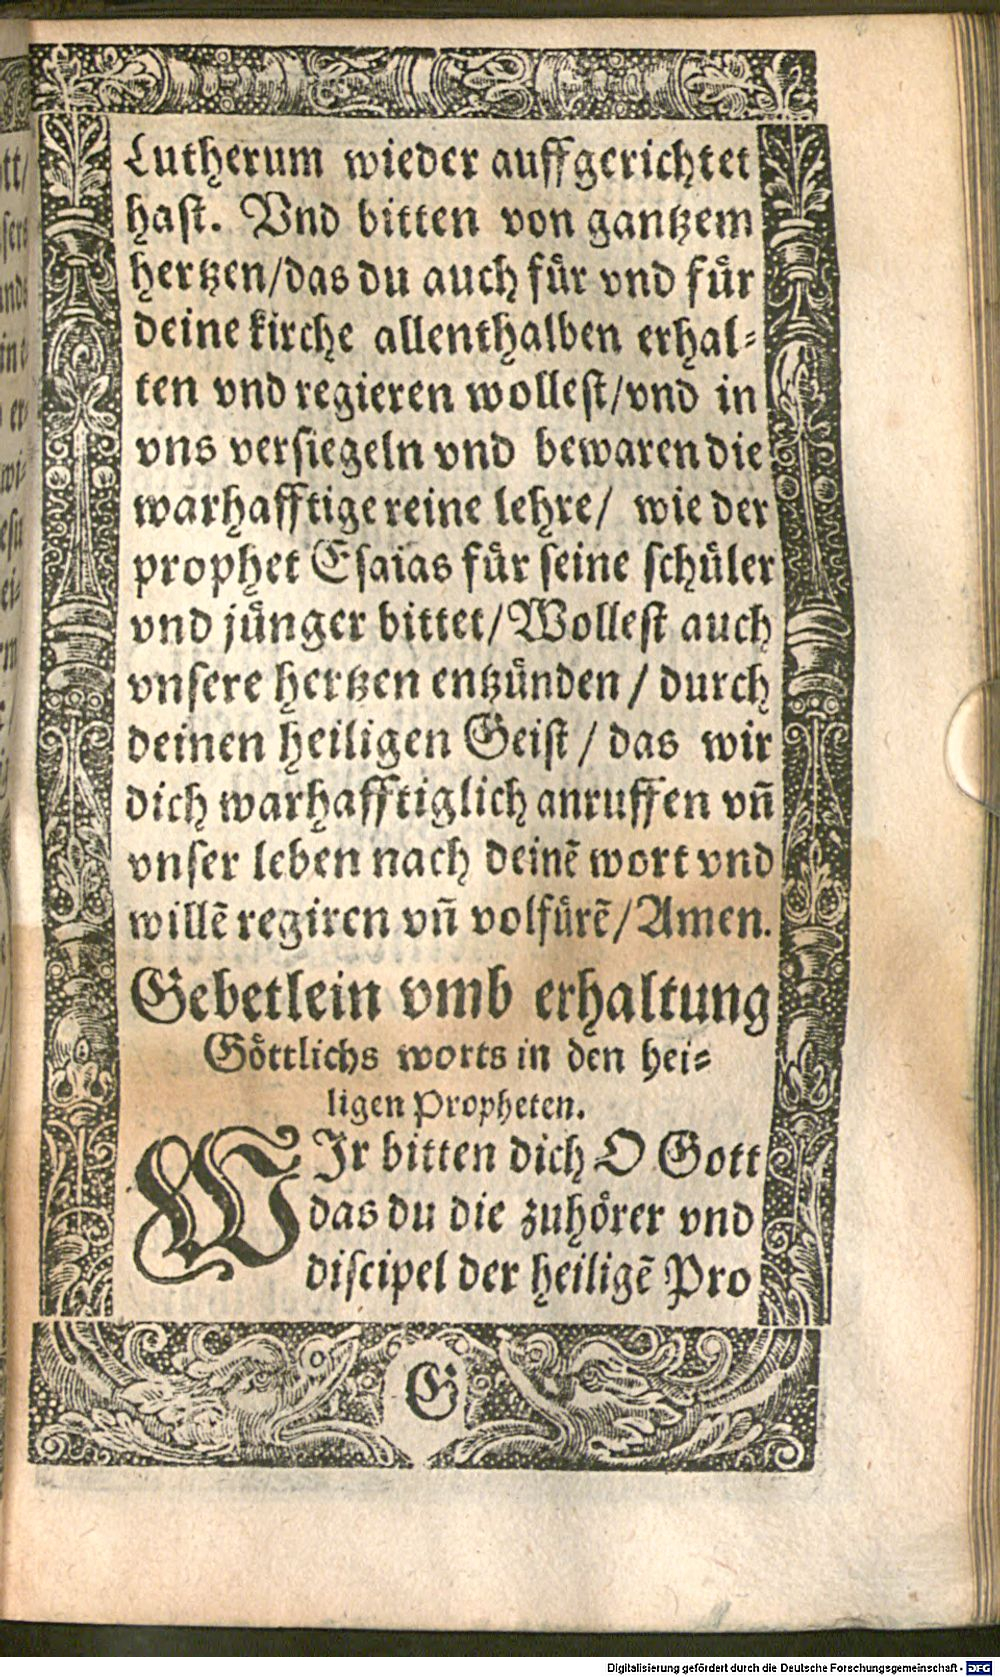 Lutherum wieder auffgerichtet
hast. Vnd bitten von gantzem
hertzen/das du auch fuͤr vnd fuͤr
deine kirche allenthalben erhal⸗
ten vnd regieren wollest/vnd in
vns versiegeln vnd bewaren die
warhafftige reine lehre/ wie der
prophet Esaias fuͤr seine schuͤler
vnd juͤnger bittet/Wollest auch
vnsere hertzen entzuͤnden / durch
deinen heiligen Geist / das wir
dich warhafftiglich anruffen vñ
vnser leben nach deinẽ wort vnd
willẽ regiren vñ volfuͤrẽ/Amen.
Gebetlein vmb erhaltung
Goͤttlichs worts in den hei⸗
ligen Propheten.
WIr bitten dich O Gott
das du die zuhoͤrer vnd
discipel der heiligẽ Pro
G
Digitalisierung gefördert durch die Deutsche Forschungsgemeinschaft - DFG